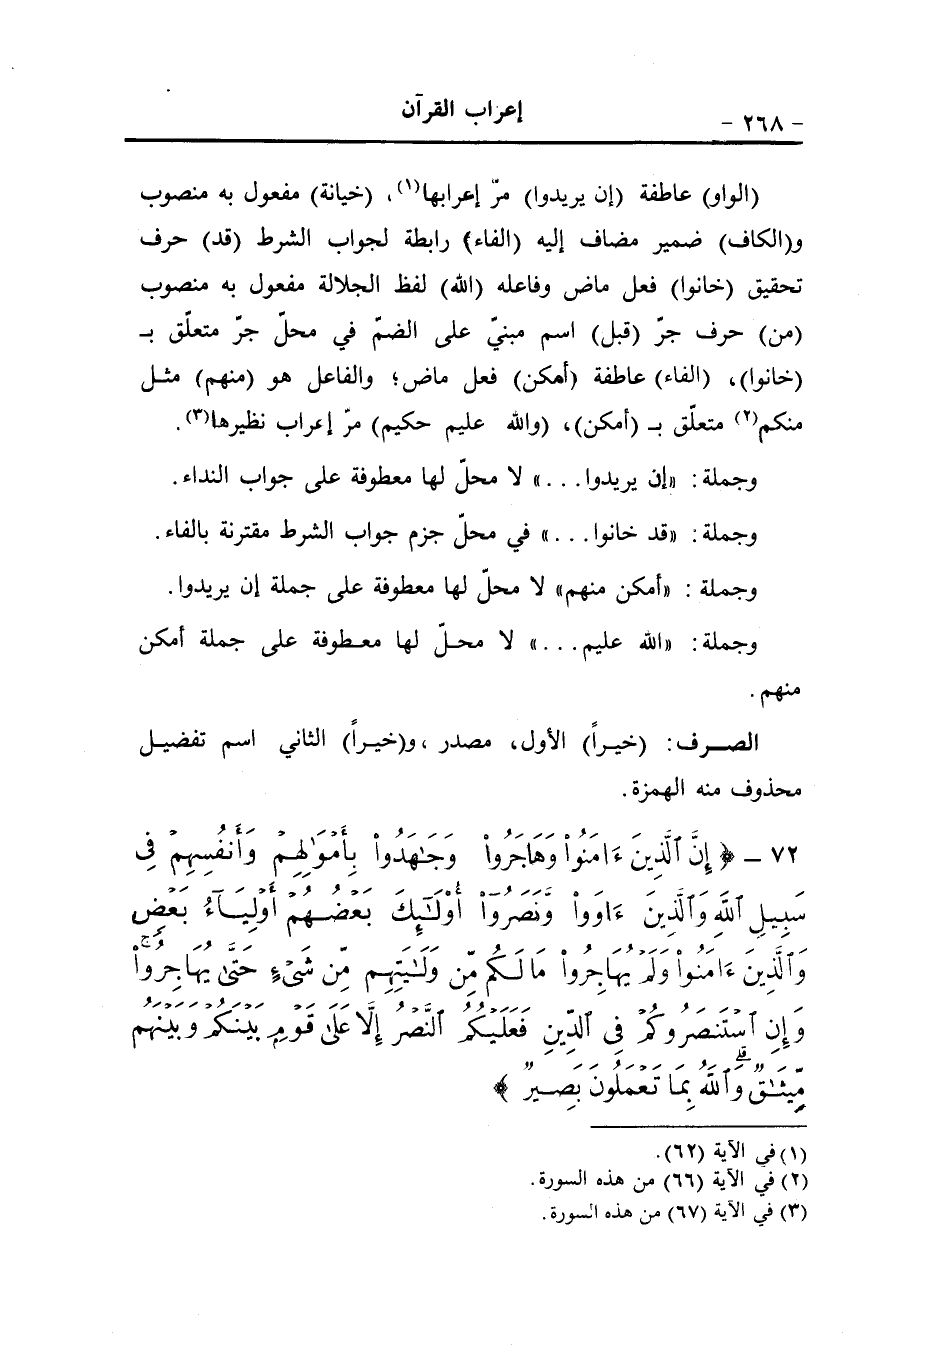 - ٢٦٨ -
إعراب القرآن
(الواو) عاطفة (إن يريدوا) مرّ إعرابها(١)، (خيانة) مفعول به منصوب
و(الكاف) ضمير مضاف إليه (الفاء) رابطة لجواب الشرط (قد) حرف
تحقيق (خانوا) فعل ماض وفاعله (الله) لفظ الجلالة مفعول به منصوب
(من) حرف جرّ (قبل) اسم مبنيّ على الضمّ في محلّ جرّ متعلّق بـ
(خانوا)، (الفاء) عاطفة (أمكن) فعل ماض؛ والفاعل هو (منهم) مثـل
منكم(٢) متعلّق بـ (أمكن)، (والله عليم حكيم) مرّ إعراب نظيرها(٣).
وجملة: «إن يريدوا...» لا محلّ لها معطوفة على جواب النداء.
وجملة: «قد خانوا...» في محلّ جزم جواب الشرط مقترنة بالفاء.
وجملة: «أمكن منهم» لا محلّ لها معطوفة على جملة إن يريدوا.
وجملة: «الله عليم...» لا محـلّ لها معـطوفة على جملة أمكن
منهم.
الصـرف: (خيـراً) الأول، مصدر، و(خيـراً) الثاني اسم تفضيـل
محذوف منه الهمزة.
٧٢ - ﴿ إِنَّ ٱلَّذِينَ ءَامَنُواْ وَهَاجَرُواْ وَجَـٰهَدُواْ بِأَمْوَٰلِهِمْ وَأَنفُسِهِمْ فِى
سَبِيلِ ٱللَّهِ وَٱلَّذِينَ ءَاوَواْ وَّنَصَرُوٓاْ أُوْلَـٰٓئِكَ بَعْضُهُمْ أَوْلِيَآءُ بَعْضٍ
وَٱلَّذِينَ ءَامَنُواْ وَلَمْ يُهَاجِرُواْ مَا لَكُم مِّن وَلَـٰيَتِهِم مِّن شَىْءٍ حَتَّىٰ يُهَاجِرُواْ ۚ
وَإِنِ ٱسْتَنصَرُوكُمْ فِى ٱلدِّينِ فَعَلَيْكُمُ ٱلنَّصْرُ إِلَّا عَلَىٰ قَوْمٍ بَيْنَكُمْ وَبَيْنَهُم
مِّيثَـٰقٌ ۗ وَٱللَّهُ بِمَا تَعْمَلُونَ بَصِيرٌ ﴾
(١) في الآية (٦٢).
(٢) في الآية (٦٦) من هذه السورة.
(٣) في الآية (٦٧) من هذه السورة.